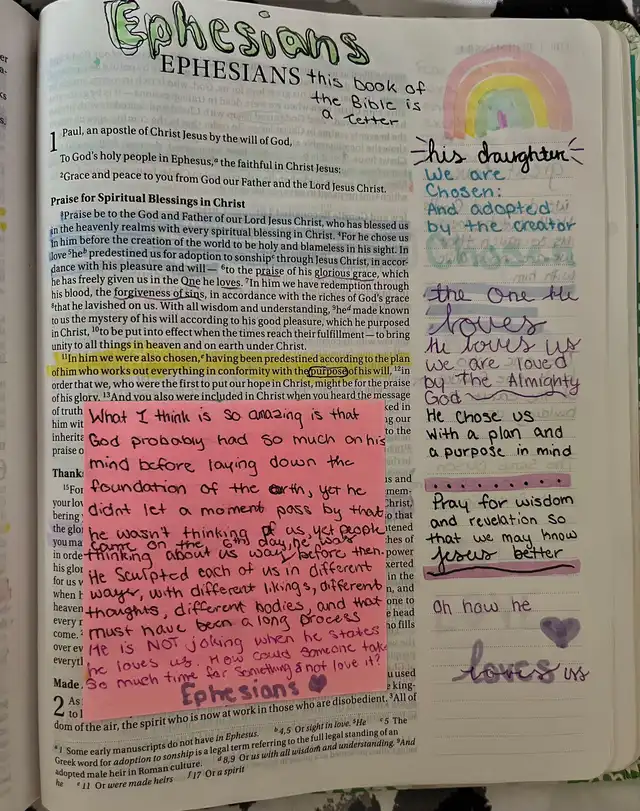 Ephesians
EPHESIANS
this book of
the Bible is
a letter
1 Paul, an apostle of Christ Jesus by the will of God,
To God's holy people in Ephesus,a the faithful in Christ Jesus:
2Grace and peace to you from God our Father and the Lord Jesus Christ.
Praise for Spiritual Blessings in Christ
3Praise be to the God and Father of our Lord Jesus Christ, who has blessed us
in the heavenly realms with every spiritual blessing in Christ. 4For he chose us
in him before the creation of the world to be holy and blameless in his sight. In
love 5heb predestined us for adoption to sonshipc through Jesus Christ, in accor-
dance with his pleasure and will— 6to the praise of his glorious grace, which
he has freely given us in the One he loves. 7In him we have redemption through
his blood, the forgiveness of sins, in accordance with the riches of God's grace
8that he lavished on us. With all wisdom and understanding, 9hed made known
to us the mystery of his will according to his good pleasure, which he purposed
in Christ, 10to be put into effect when the times reach their fulfillment—to bring
unity to all things in heaven and on earth under Christ.
11In him we were also chosen,e having been predestined according to the plan
of him who works out everything in conformity with the purpose of his will, 12in
order that we, who were the first to put our hope in Christ, might be for the praise
of his glory. 13And you also were included in Christ when you heard the message
of truth
ked in
him wit
ng our
inherita
to the
praise o
Thank
15For
s and
your lov
mem-
bering y
Christ,
the glor
so that
you ma
htened
in orde
hes of
his glor
power
for us w
xerted
when h
in the
heaven
n, and
every n
one to
come. 2
e head
over ev
o fills
everyt
What I think is so amazing is that
God probably had so much on his
mind before laying down the
foundation of the earth, yet he
didnt let a moment pass by that
he wasn't thinking of us, yet people
came on the 6th day, he was
thinking about us way before then.
He sculpted each of us in different
ways, with different likings, different
thoughts, different bodies, and that
must have been a long process
He is NOT joking when he states
he loves us. How could someone take
so much time for something & not love it?
Ephesians
Made
2 As
u used
to l
e king-
dom of the air, the spirit who is now at work in those who are disobedient. 3All of
a 1 Some early manuscripts do not have in Ephesus. b 4,5 Or sight in love. 5He c 5 The
Greek word for adoption to sonship is a legal term referring to the full legal standing of an
adopted male heir in Roman culture. d 8,9 Or us with all wisdom and understanding. 9And
he e 11 Or were made heirs f 17 Or a spirit
his daughter
We are
Chosen:
And adopted
by the creator
the One He
loves
He loves us
we are loved
by the Almighty
God
He chose us
with a plan and
a purpose in mind
Pray for wisdom
and revelation so
that we may know
Jesus better
Oh how he
loves us